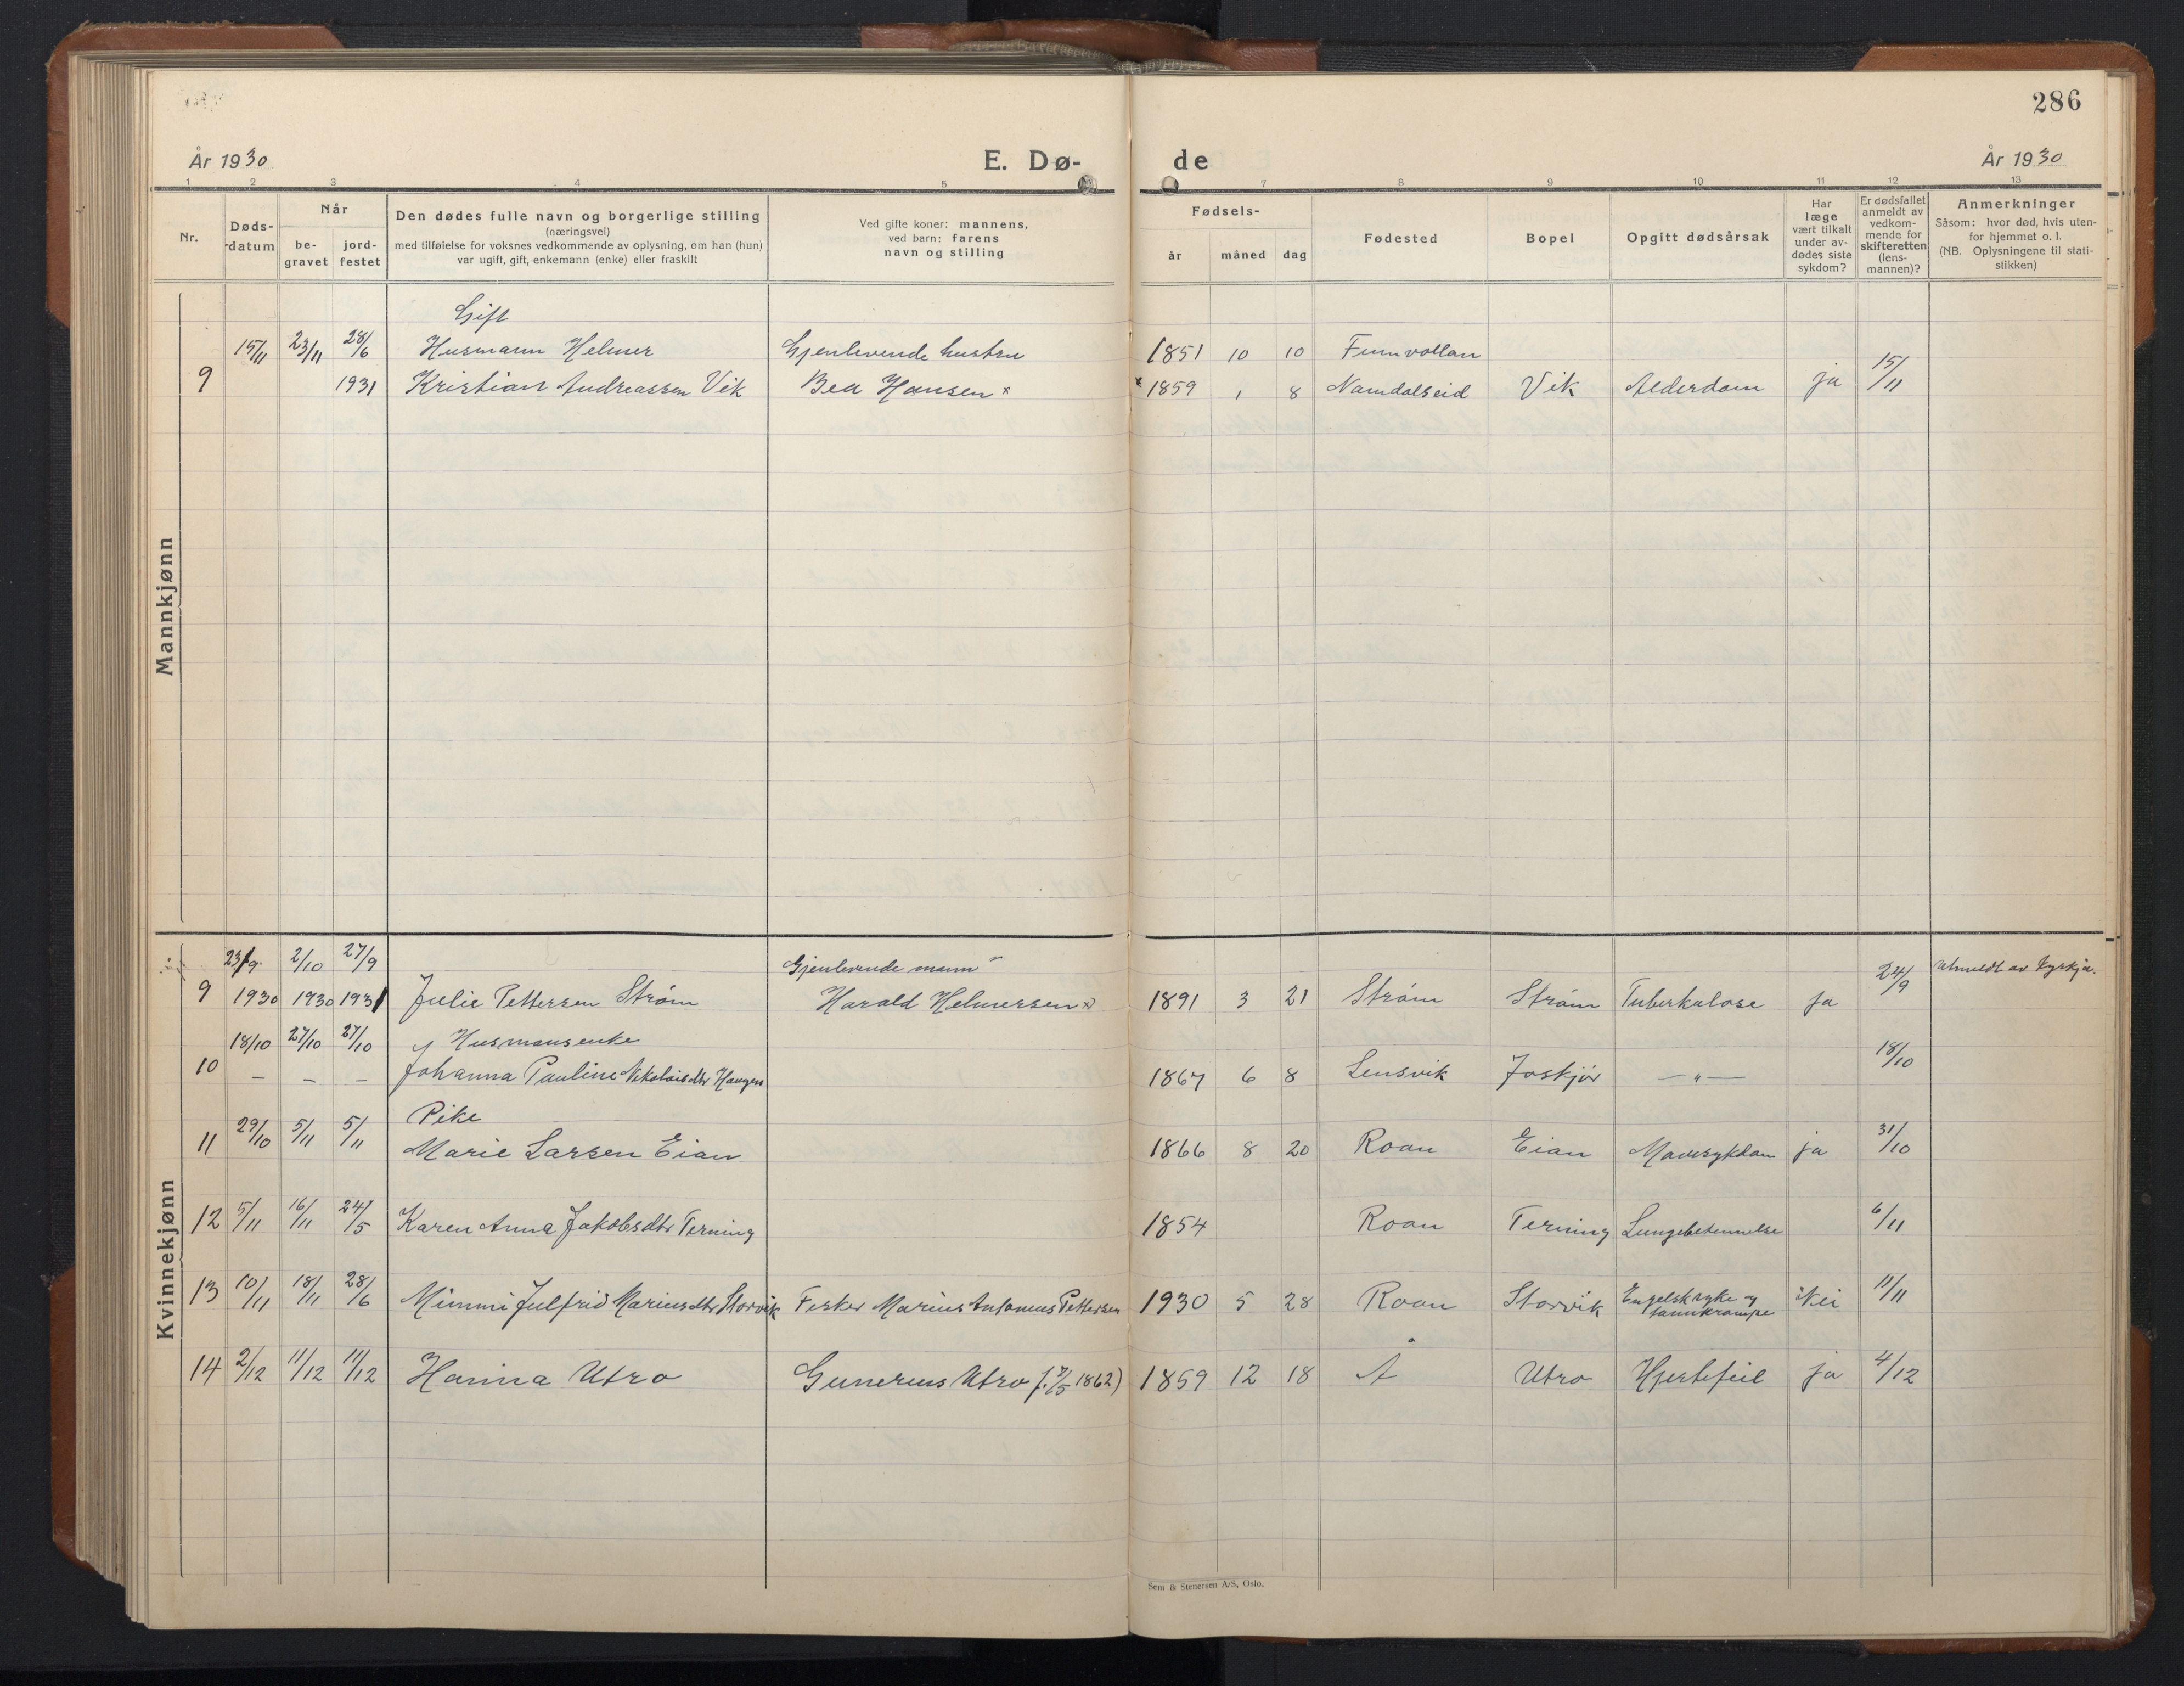 286
År 1930
E. Dø-
de
År 1930
1 2 3 4 5 7 8 9 10 11 12 13
Nr.
Døds-
datum
Når
be-
gravet
jord-
festet
Den dødes fulle navn og borgerlige stilling
(næringsvei)
med tilføielse for voksnes vedkommende av oplysning, om han (hun)
var ugift, gift, enkemann (enke) eller fraskilt
Ved gifte koner: mannens,
ved barn: farens
navn og stilling
Fødsels-
år måned dag
Fødested
Bopel
Opgitt dødsårsak
Har
læge
vært tilkalt
under av-
dødes siste
sykdom?
Er dødsfallet
anmeldt av
vedkom-
mende for
skifteretten
(lens-
mannen)?
Anmerkninger
Såsom: hvor død, hvis uten-
for hjemmet o. l.
(NB. Oplysningene til stati-
stikken)
Mannkjønn
Gift
15/11 23/11 28/6 Husmann Helmer Gjenlevende hustru 1851 10 10 Finnvollan
9 1931 Kristian Andreassen Vik Bea Hansen x x 1859 1 8 Namdalseid Vik Alderdom ja 15/11
Kvinnekjønn
23/9 2/10 27/9 Gjenlevende mann Utmeldt av kyrkja.
9 1930 1930 1931 Julie Pettersen Strøm Harald Helmersen x) 1891 3 21 Strøm Strøm Tuberkulose ja 24/9
18/10 27/10 27/10 Husmansenke
10 — — — Johanna Pauline Nikolaisdtr Haugen 1867 6 8 Lensvik Joskjør — " — 18/10
Pike
11 29/10 5/11 5/11 Marie Larsen Eian 1866 8 20 Roan Eian Mavesykdom ja 31/10
12 5/11 16/11 24/5 Karen Anna Jakobsdtr Terning 1854 Roan Terning Lungebetennelse 6/11
13 10/11 18/11 28/6 Mimmi Julfrid Mariusdtr Storvik Fisker Marius Antonius Pettersen 1930 5 28 Roan Storvik Engelsk syke og
tannkrampe Nei 11/11
14 2/12 11/12 11/12 Hanna Utro Gunerius Utro f. 7/5 1862) 1859 12 18 Å Utro Hjertefeil ja 4/12
Sem & Stenersen A/S, Oslo.